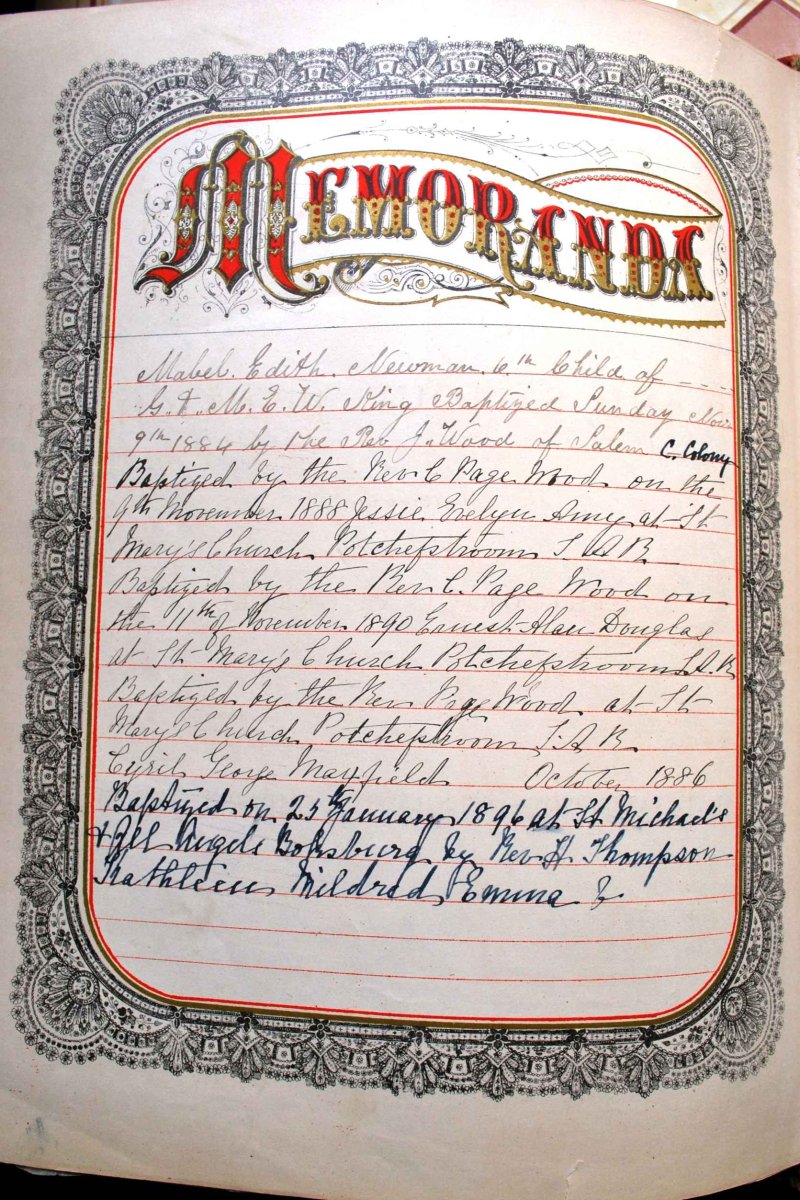 MEMORANDA
Mabel. Edith. Newman. 6th Child of
G. & M. E. W. King Baptized Sunday Nov
9th 1884 by the Rev J. Wood of Salem C. Colony
Baptized by the Rev C Page Wood on the
9th November 1888 Jessie Evelyn Amy at St
Mary's Church Potchefstroom S A R
Baptized by the Rev C. Page Wood on
the 11th of November 1890 Ernest Alan Douglas
at St Mary's Church Potchefstroom S.A.R
Baptized by the Rev Page Wood at St
Mary's Church Potchefstroom S.A R
Cyril George Mayfield October 1886
Baptized on 25th January 1896 at St Michael's
& All Angels Boksburg by Rev H Thompson
Kathleen Mildred Emma